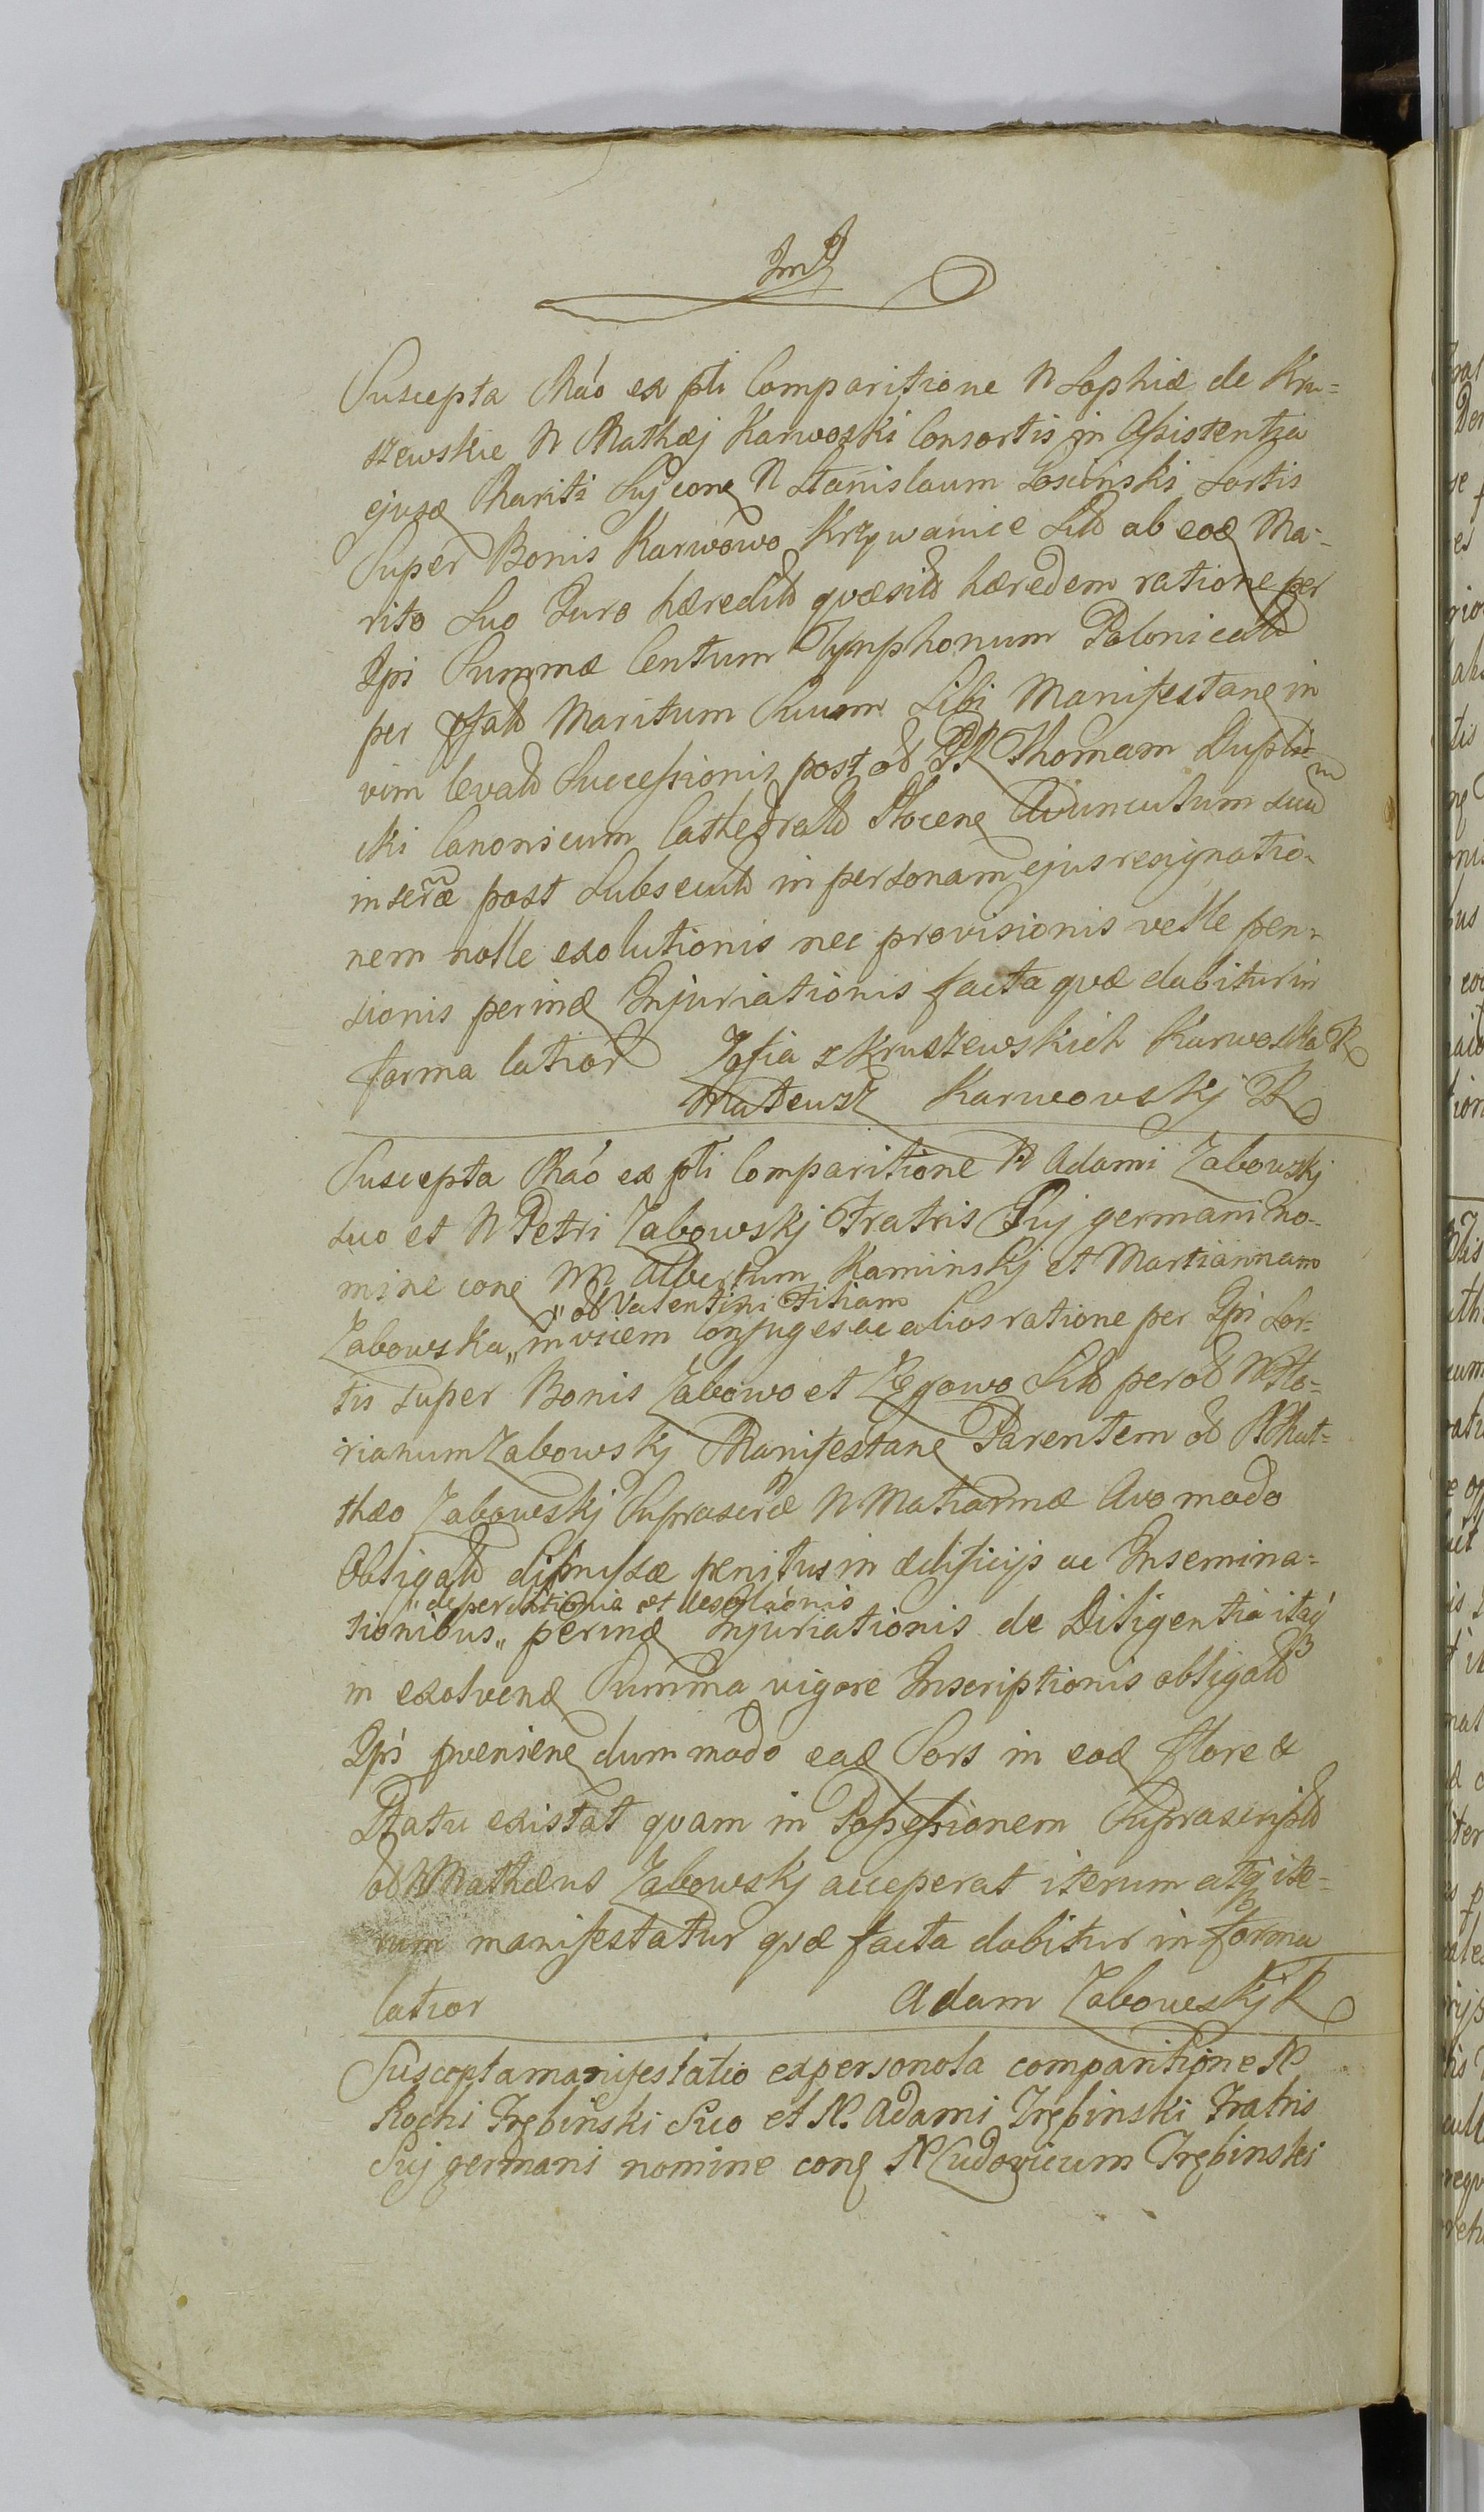 Suscepta Mäo ex pti Comparitione N Sophiæ de Kru=
szewskie N Mathæj Karwoski Consortis in Assistentia
ejusd Mariti Suj cong N Stanislaum Losinski Sortis
Super Bonis Karwowo Krzywanice Sitt ab eod Ma-
rito Suo Jure hæredit quæsit hæredem ratione per
Ipi Summæ Centum Tynphonum Polonical
per pfat Maritum Suum Sibi Manifestane in
vim levat Successionis post od Thomam Duplic=
cki Canonicum Cathedrat Plocen Avunculum suu
inseræ post Subsecut in personam ejus resignatio-
nem nolle exolutionis nec provisionis velle pen-
sionis perind Injuriationis facta qvæ dabitur in
forma latior Zofia z Kruszewskich Karwoska R
Mateusz Karwowskj R
Suscepta Mäo ex pti Comparitione N Adami Zabowskj
suo et N Petri Zabowskj Fratris Suj germani no-
mine cong NN Albertum Kaminskj et Martiannam
" od Valentini Filiam
Zabowska " invicem Conjuges ac alios ratione per Ipi Sor-
tis super Bonis Zabowo et Zgowo Sitt per od N Flo=
rianum Zabowskj Manifestane Parentem od N Mat=
thæo Zabowskj Suprascræ N Matiannæ Avo modo
Obligatt dismissæ penitus in ædificijs ac Insemina=
" deperditionis et desolaonis
tionibus " perind Injuriationis de Diligentia itaq
in exolvend Summa vigore Inscriptionis obligatt
Ipi pvenien dummodo ead Sors in eod flore &
Statu existat quam in Possessionem Suprascript
od N Mathæus Zabowskj acceperat iterum atq ite=
rum manifestatur qvæ facta dabitur in forma
latior Adam Zabowskj R
Suscepta manifestatio ex personola comparitione N
Rochi Trębinski Suo et N. Adami Trębinski Fratris
Suj germani nomine cong N Ludovicum Trębinski